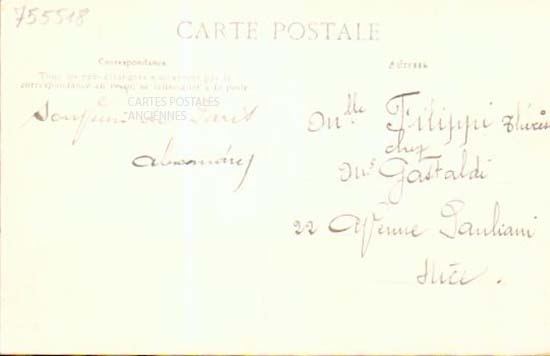 755518
CARTE POSTALE
Correspondance
Adresse
Tous les pays étrangers n'acceptent pas la
correspondance au recto, se renseigner à la poste
CARTES POSTALES
ANCIENNES
de Paris
Mlle Filippi Thérèse
chez
Mr Gastaldi
22 Avenue Pauliani
Nice.